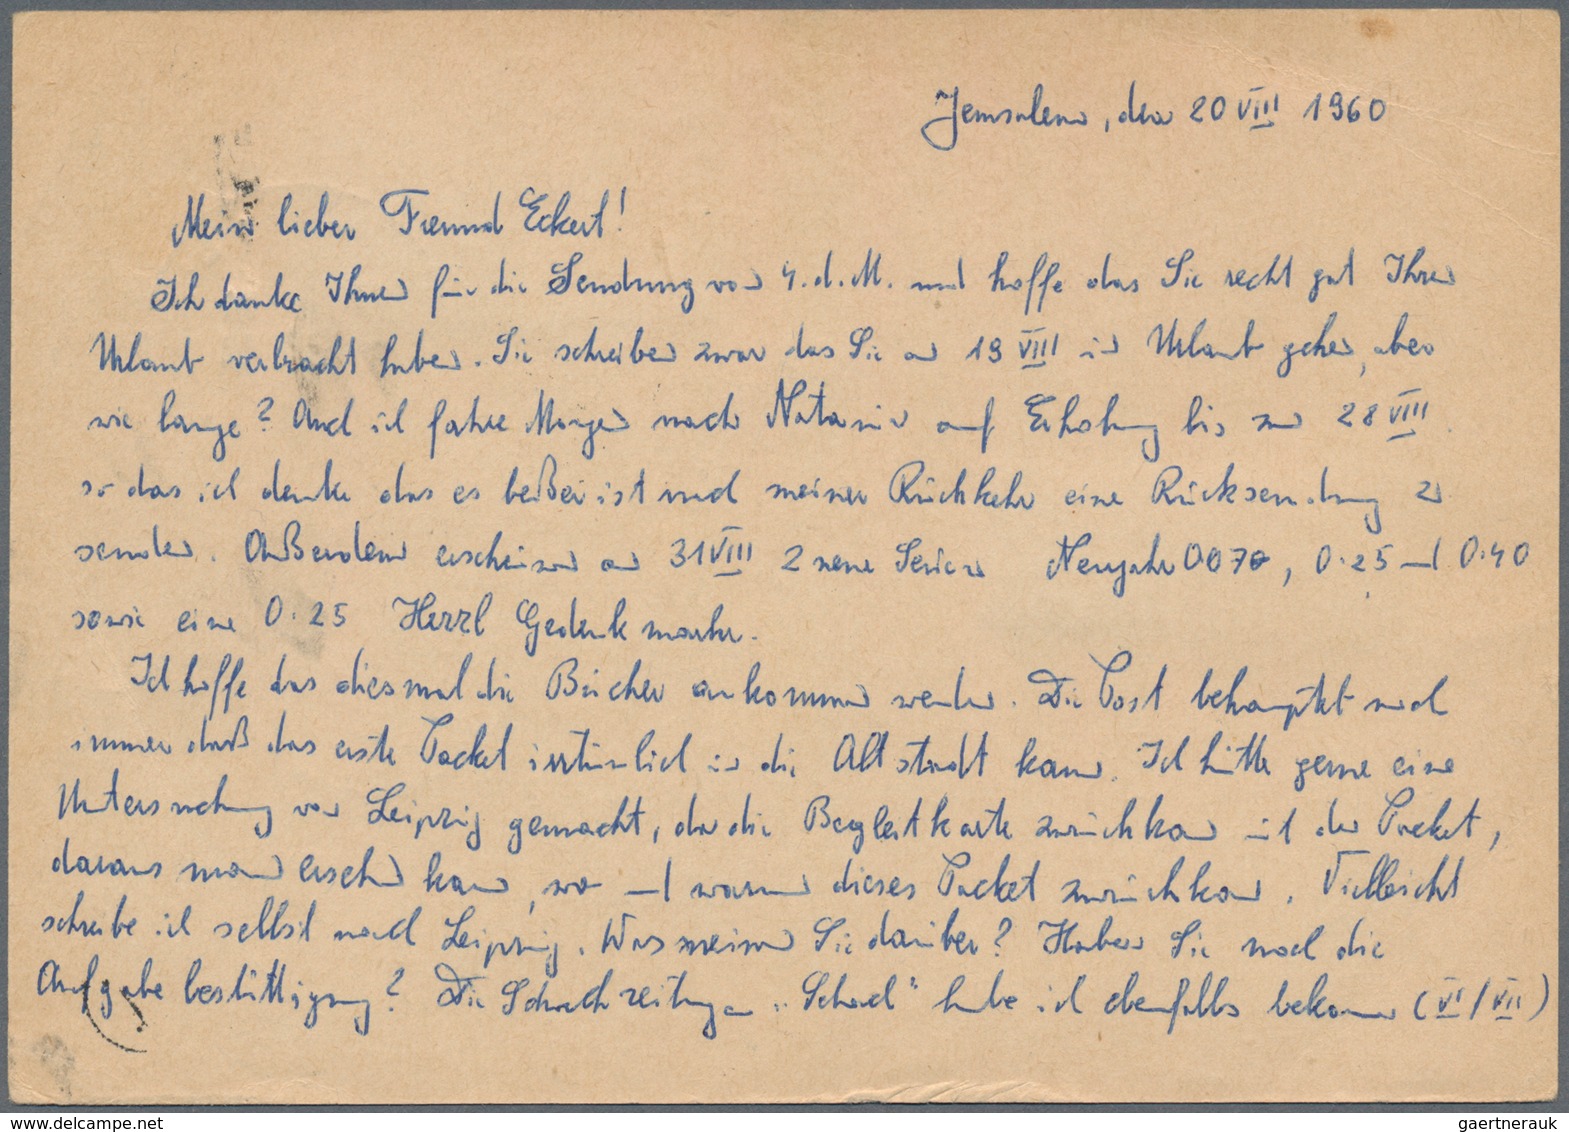 Jerusalem, den 20 VIII 1960
Mein lieber Freund Eckert!
Ich danke Ihnen für die Sendung von 4. d. M. und hoffe das Sie recht gut Ihren
Urlaub verbracht haben. Sie schreiben zwar das Sie an 19 VIII in Urlaub gehen, aber
wie lange? Auch ich fahre Morgen nach Natania auf Erholung bis zum 28 VIII.
so das ich denke das es beßer ist nach meiner Rückkehr eine Rücksendung zu
senden. Außerdem erscheinen am 31 VIII 2 neue Serien Neujahr 0070, 0.25 und 0.40
sowie eine 0.25 Herzl Gedenkmarke.
Ich hoffe das diesmal die Bücher ankommen werden. Die Post behauptet noch
immer daß das erste Packet irrtümlich in die Altstadt kam. Ich hätte gerne eine
Untersuchung von Leipzig gemacht, da die Begleitkarte zurückkam mit den Packet,
daraus man ersehen kann, wo und wann dieses Packet zurückkam. Vielleicht
schreibe ich selbst nach Leipzig. Was meinen Sie darüber? Haben Sie noch die
Aufgabe bestättigung? Die Schachzeitungen „Schach“ habe ich ebenfalls bekommen (VI/VII)
gaertnerauk